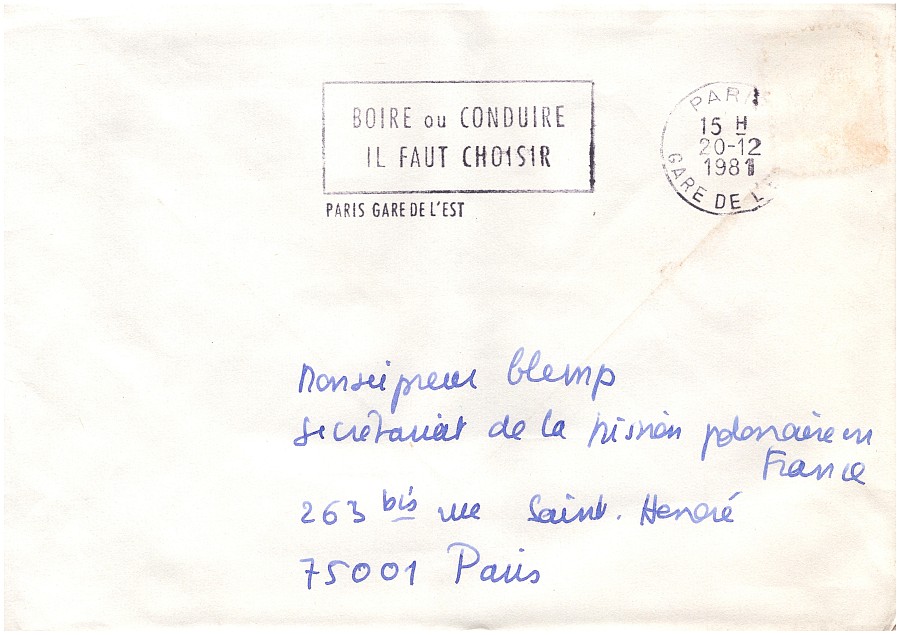 BOIRE ou CONDUIRE
IL FAUT CHOISIR
PARIS GARE DE L'EST
PARIS
15 H
20-12
1981
GARE DE L'E
Monseigneur Glemp
Secrétariat de la Mission polonaise en
France
263 bis rue Saint. Honoré
75001 Paris